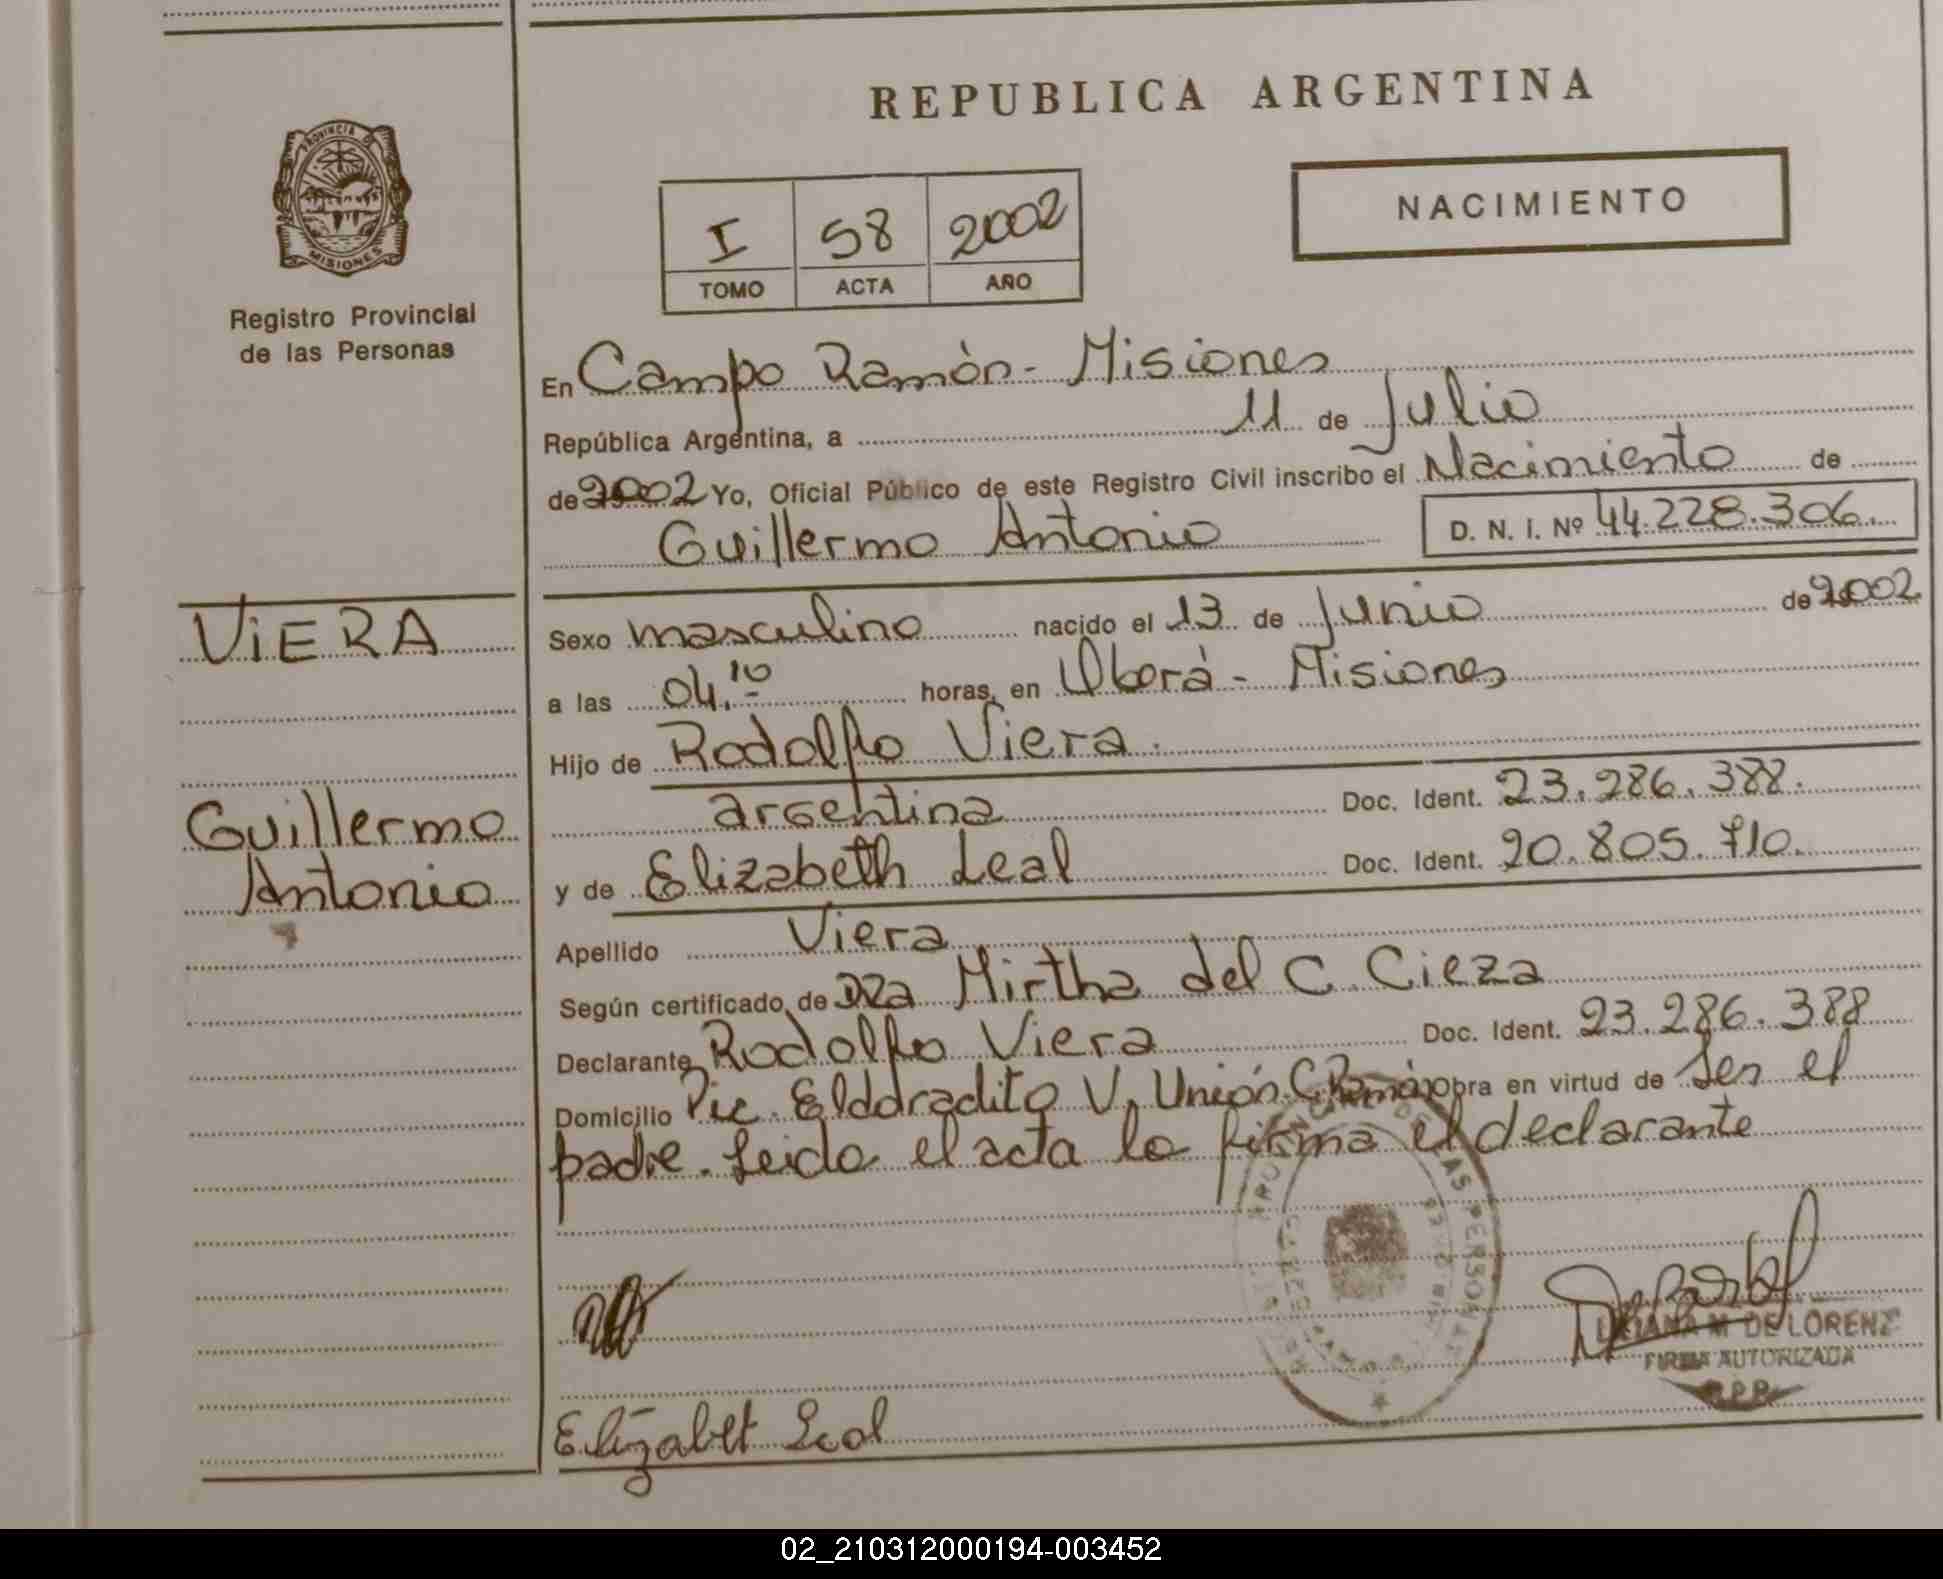 REPUBLICA ARGENTINA
PROVINCIA DE MISIONES
Registro Provincial
de las Personas
NACIMIENTO
I 58 2002
TOMO ACTA AÑO
En Campo Ramón - Misiones
República Argentina, a 11 de Julio
de 2002 Yo, Oficial Público de este Registro Civil inscribo el Nacimiento de
Guillermo Antonio D. N. I. Nº 44.228.306.
VIERA
Guillermo
Antonio
Sexo masculino nacido el 13 de Junio de 2002
a las 04.10 horas, en Oberá - Misiones
Hijo de Rodolfo Viera.
argentina Doc. Ident. 23.286.388.
y de Elizabeth Leal Doc. Ident. 20.805.710.
Apellido Viera
Según certificado de DRa Mirtha del C. Cieza
Declarante Rodolfo Viera Doc. Ident. 23.286.388
Domicilio Pic. Eldoradito V. Unión C. Ramón obra en virtud de Ser el
padre. Leida el acta la firma el declarante
LILIANA M DE LORENZ
FIRMA AUTORIZADA
R.P.P.
Elizabet Leal
02_210312000194-003452